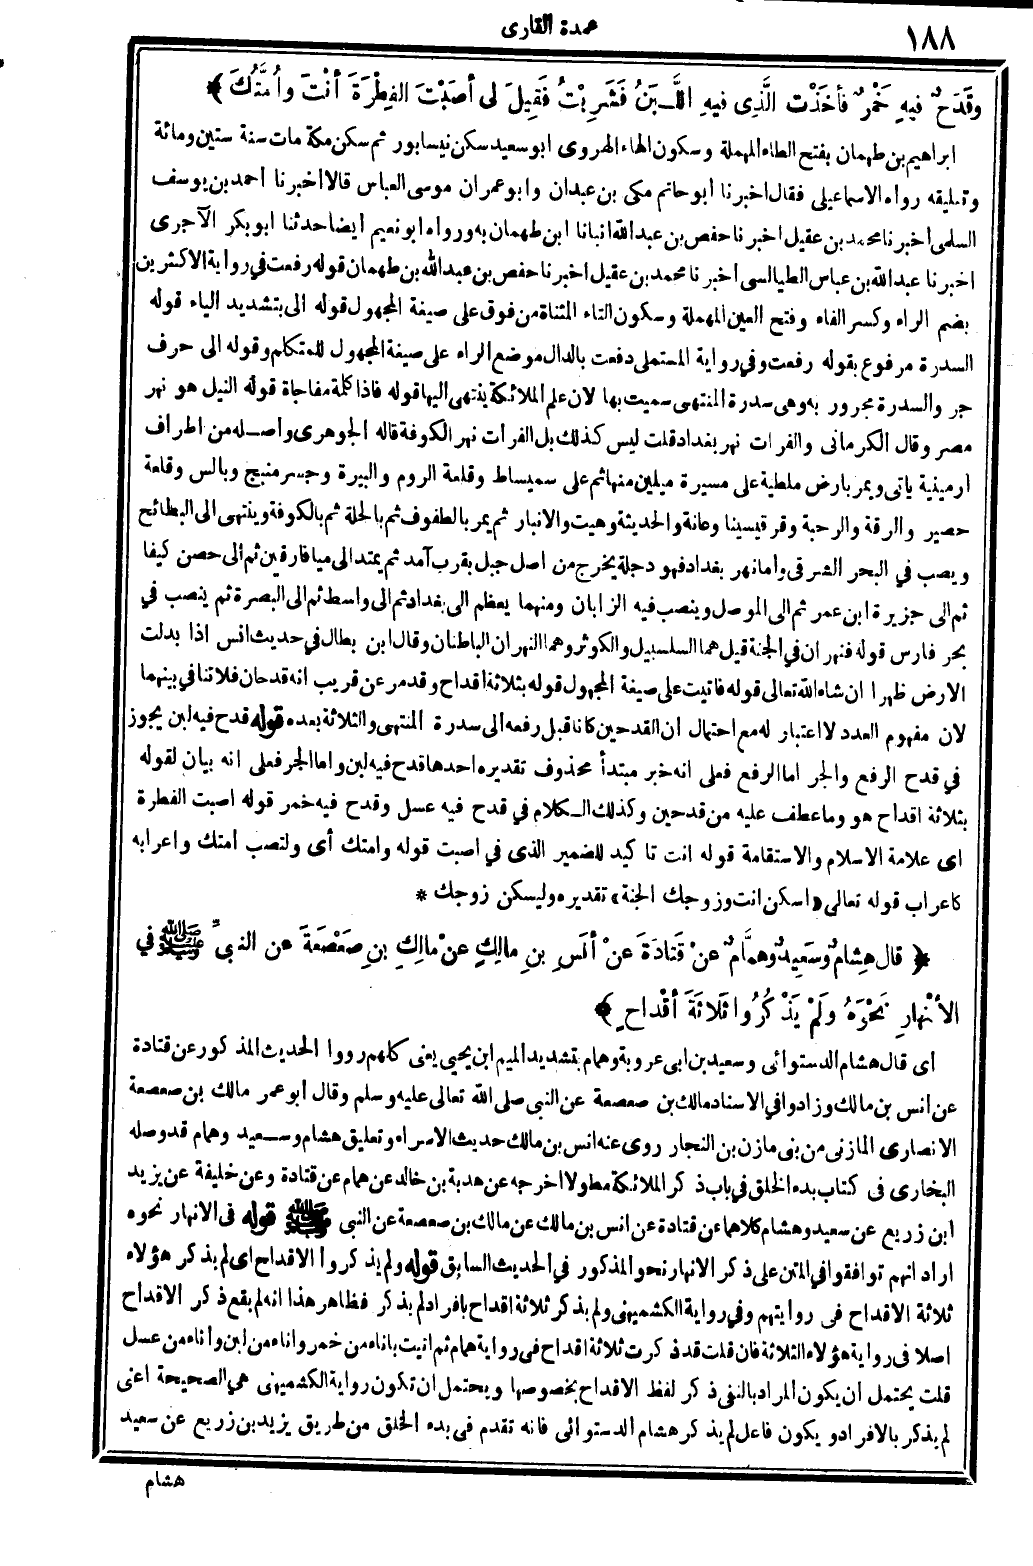 ١٨٨
عمدة القارى
وقَدَحٌ فيهِ خَمْرٌ فأخَذْت الَّذِى فيهِ اللَّـبَنُ فَشَرِبْتُ فَقِيلَ لِى أصَبْتَ الفِطْرَةَ أنْتَ وأُمَّتُكَ ﴾
ابراهيم بن طهمان بفتح الطاء المهملة وسكون الهاء الهروى ابو سعيد سكن نيسابور ثم سكن مكة مات سنة ستين ومائة
وتعليقه رواه الاسماعيلى فقال اخبرنا أبو حاتم مكى بن عبدان وابو عمران موسى العباس قالا اخبرنا أحمد بن يوسف
السلمى أخبرنا محمد بن عقيل اخبرنا حفص بن عبد الله انبانا ابن طهمان به ورواه ابو نعيم أيضا حدثنا ابو بكر الآجرى
اخبرنا عبد الله بن عباس الطيالسى أخبرنا محمد بن عقيل اخبرنا حفص بن عبد الله بن طهمان قوله رفعت في رواية الاكثرين
بضم الراء وكسر الفاء وفتح العين المهملة وسكون التاء المثناة من فوق على صيغة المجهول قوله الى بتشديد الياء قوله
السدرة مرفوع بقوله رفعت وفي رواية المستملى دفعت بالدال موضع الراء على صيغة المجهول للمتكلم وقوله الى حرف
جر والسدرة مجرور به وهى سدرة المنتهى سميت بها لان علم الملائكة ينتهى اليها قوله فاذا كلمة مفاجاة قوله النيل هو نهر
مصر وقال الكرمانى والفرات نهر بغداد قلت ليس كذلك بل الفرات نهر الكوفة قاله الجوهرى وأصـله من اطراف
ارمينية ياتى ويمر بارض ملطية على مسيرة ميلين منها ثم على سميساط وقلعة الروم والبيرة وجسر منبج وبالس وقلعة
حصير والرقة والرحبة وقرقيسينا وعانة والحديثة وهيت والانبار ثم يمر بالطفوف ثم بالحلة ثم بالكوفة وينتهى الى البطائح
ويصب في البحر الشرقى وأما نهر بغداد فهو دجلة يخرج من اصل جبل بقرب آمد ثم يمتد الى ميافارقين ثم الى حصن كيفا
ثم الى جزيرة ابن عمر ثم الى الموصل وينصب فيه الزابان ومنهما يعظم الى بغداد ثم الى واسط ثم الى البصرة ثم ينصب في
بحر فارس قوله فنهران في الجنة قيل هما السلسبيل والكوثر وهما النهران الباطنان وقال ابن بطال في حديث انس اذا بدلت
الارض ظهرا ان شاء الله تعالى قوله فاتيت على صيغة المجهول قوله بثلاثة اقداح وقد مر عن قريب انه قدحان فلا تنافي بينهما
لان مفهوم العدد لا اعتبار له مع احتمال ان القدحين كانا قبل رفعه الى سدرة المنتهى والثلاثة بعده قوله قدح فيه لبن يجوز
في قدح الرفع والجر اما الرفع فعلى انه خبر مبتدأ محذوف تقديره احدها قدح فيه لبن واما الجر فعلى انه بيان لقوله
بثلاثة اقداح هو وما عطف عليه من قدحين وكذلك الـكلام في قدح فيه عسل وقدح فيه خمر قوله اصبت الفطرة
اى علامة الاسلام والاستقامة قوله انت تاكيد للضمير الذى في اصبت قوله وامتك أى ولتصب أمتك واعرابه
كاعراب قوله تعالى «اسكن انت وزوجك الجنة» تقديره وليسكن زوجك *
﴿ قال هِشامٌ وسَعِيدٌ وهمَّامٌ عنْ قَتادَةَ عنْ أنَسِ بنِ مالِكٍ عنْ مالِكِ بنِ صَعْصَعَةَ عن النبىِّ ﷺ في
الأنْهارِ نَحْوَهُ ولَمْ يَذْكُرُوا ثَلاثَةَ أقْداحٍ ﴾
أى قال هشام الدستوائى وسعيد بن ابى عروبة وهمام بتشديد الميم ابن يحيى يعنى كلهم رووا الحديث المذكور عن قتادة
عن انس بن مالك وزادوا في الاسناد مالك بن صعصعة عن النبى صلى الله تعالى عليه وسلم وقال أبو عمر مالك بن صعصعة
الانصارى المازنى من بنى مازن بن النجار روى عنه انس بن مالك حديث الاسراء وتعليق هشام وسـعيد وهمام قد وصله
البخارى فى كتاب بدء الخلق في باب ذكر الملائكة مطولا اخرجه عن هدبة بن خالد عن همام عن قتادة وعن خليفة عن يزيد
ابن زريع عن سعيد وهشام كلاهما عن قتادة عن انس بن مالك عن مالك بن صعصعة عن النبى ﷺ قوله فى الانهار نحوه
اراد انهم توافقوا في المتن على ذكر الانهار نحو المذكور في الحديث السابق قوله ولم يذكروا الاقداح اى لم يذكر هؤلاء
ثلاثة الاقداح فى روايتهم وفي رواية الكشميهنى ولم يذكر ثلاثة اقداح بافراد لم يذكر فظاهر هذا انه لم يقع ذكر الاقداح
اصلا فى رواية هؤلاء الثلاثة فان قلت قد ذكرت ثلاثة اقداح فى رواية همام ثم اتيت باناء من خمر واناء من لبن وأناء من عسل
قلت يحتمل ان يكون المراد بالنفى ذكر لفظ الاقداح بخصوصها ويحتمل ان تكون رواية الكشميهنى هي الصحيحة اعنى
لم يذكر بالافراد ويكون فاعل لم يذكر هشام الدستوائى فانه تقدم فى بدء الخلق من طريق يزيد بن زريع عن سعيد
هشام